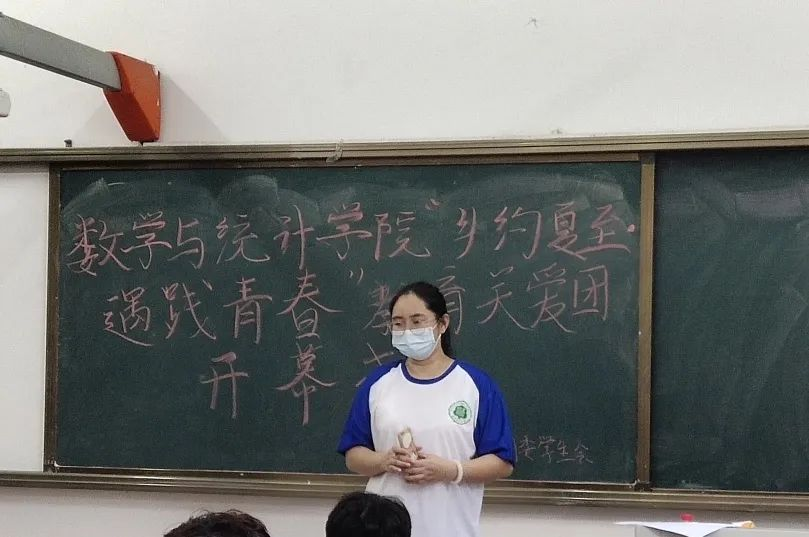 数学与统计学院“乡约夏至·
遇践青春”教育关爱团
开幕
委学生会